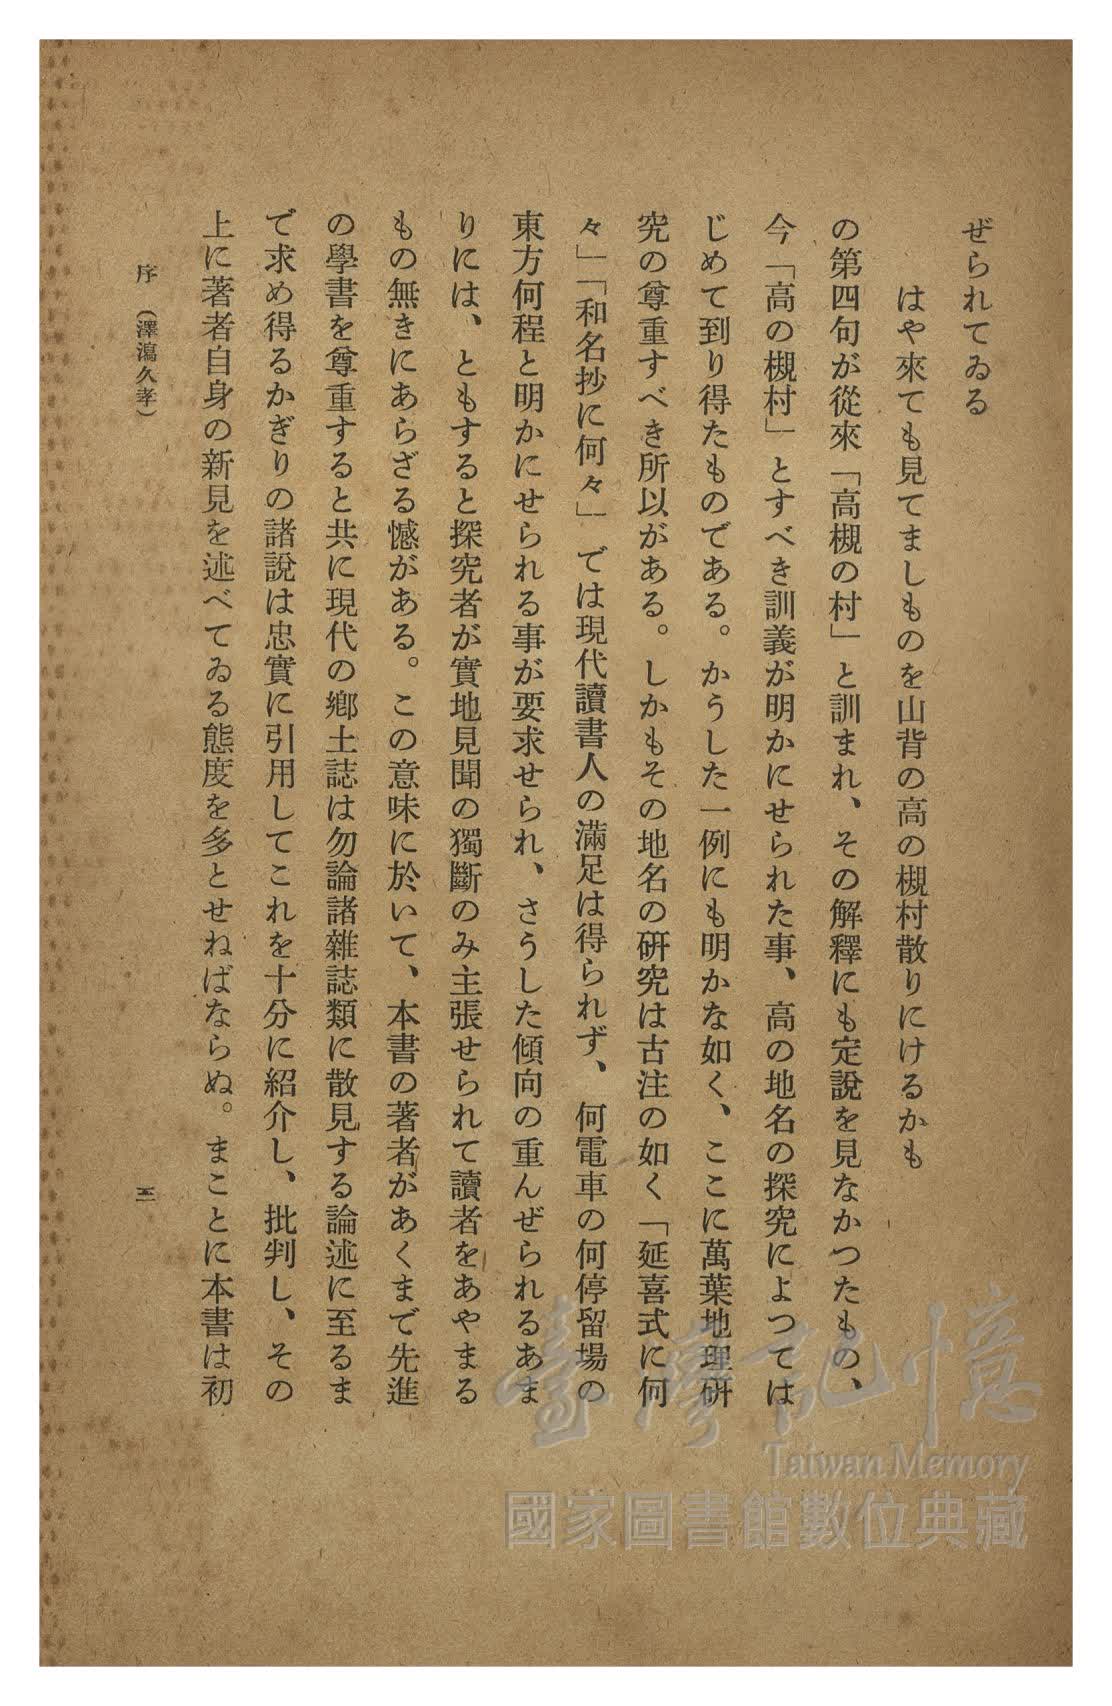 ぜられてゐる
はや來ても見てましものを山背の高の槻村散りにけるかも
の第四句が從來「高槻の村」と訓まれ、その解釋にも定說を見なかつたもの、
今「高の槻村」とすべき訓義が明かにせられた事、高の地名の探究によつては
じめて到り得たものである。かうした一例にも明かな如く、ここに萬葉地理硏
究の尊重すべき所以がある。しかもその地名の硏究は古注の如く「延喜式に何
々」「和名抄に何々」では現代讀書人の滿足は得られず、何電車の何停留場の
東方何程と明かにせられる事が要求せられ、さうした傾向の重んぜられるあま
りには、ともすると探究者が實地見聞の獨斷のみ主張せられて讀者をあやまる
もの無きにあらざる憾がある。この意味に於いて、本書の著者があくまで先進
の學書を尊重すると共に現代の鄕土誌は勿論諸雜誌類に散見する論述に至るま
で求め得るかぎりの諸說は忠實に引用してこれを十分に紹介し、批判し、その
上に著者自身の新見を述べてゐる態度を多とせねばならぬ。まことに本書は初
序 (澤瀉久孝)
臺灣記憶
Taiwan Memory
國家圖書館數位典藏